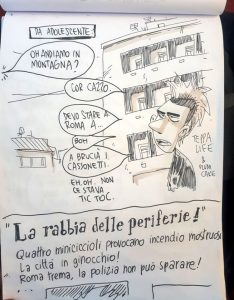 DA ADOLESCENTE:
OH ANDIAMO IN
MONTAGNA?
COR CAZZO.
DEVO STARE A
ROMA A...
BOH
A BRUCIÀ I
CASSONETTI.
EH, OH. NON
CE STAVA
TIC TOC.
TEPPA
LIFE
"La rabbia delle periferie!"
Quattro miniciccioli provocano incendio mostruoso
La città in ginocchio!
Roma trema, la polizia non può sparare!